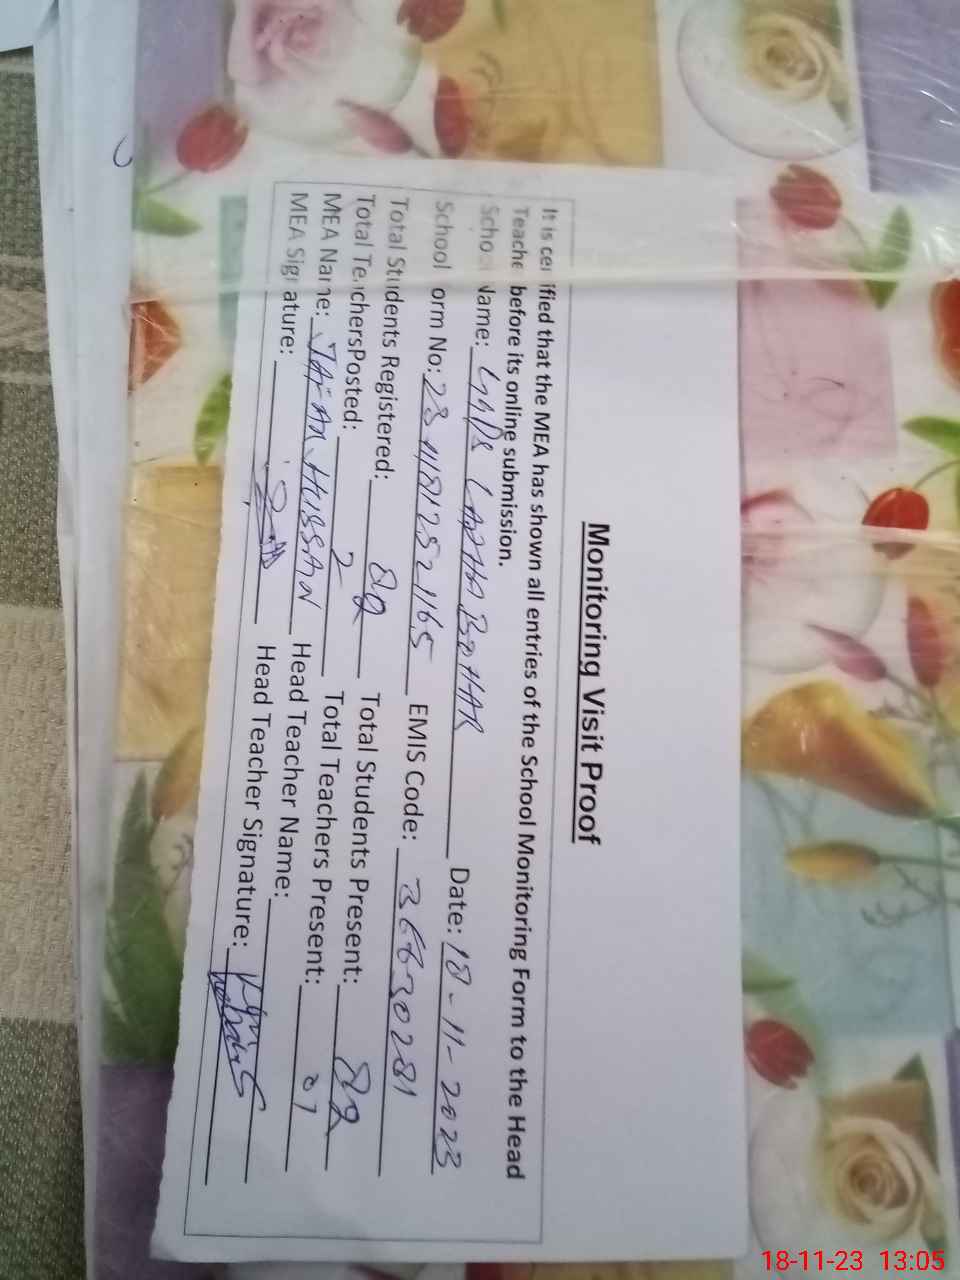 Monitoring Visit Proof
It is certified that the MEA has shown all entries of the School Monitoring Form to the Head
Teacher before its online submission.
School Name: GMPS Date: 18-11-2023
School Form No: EMIS Code: 36630281
Total Students Registered: 82 Total Students Present: 82
Total TeachersPosted: 2 Total Teachers Present: 01
MEA Name: HUSSAN Head Teacher Name:
MEA Signature: Head Teacher Signature:
18-11-23 13:05